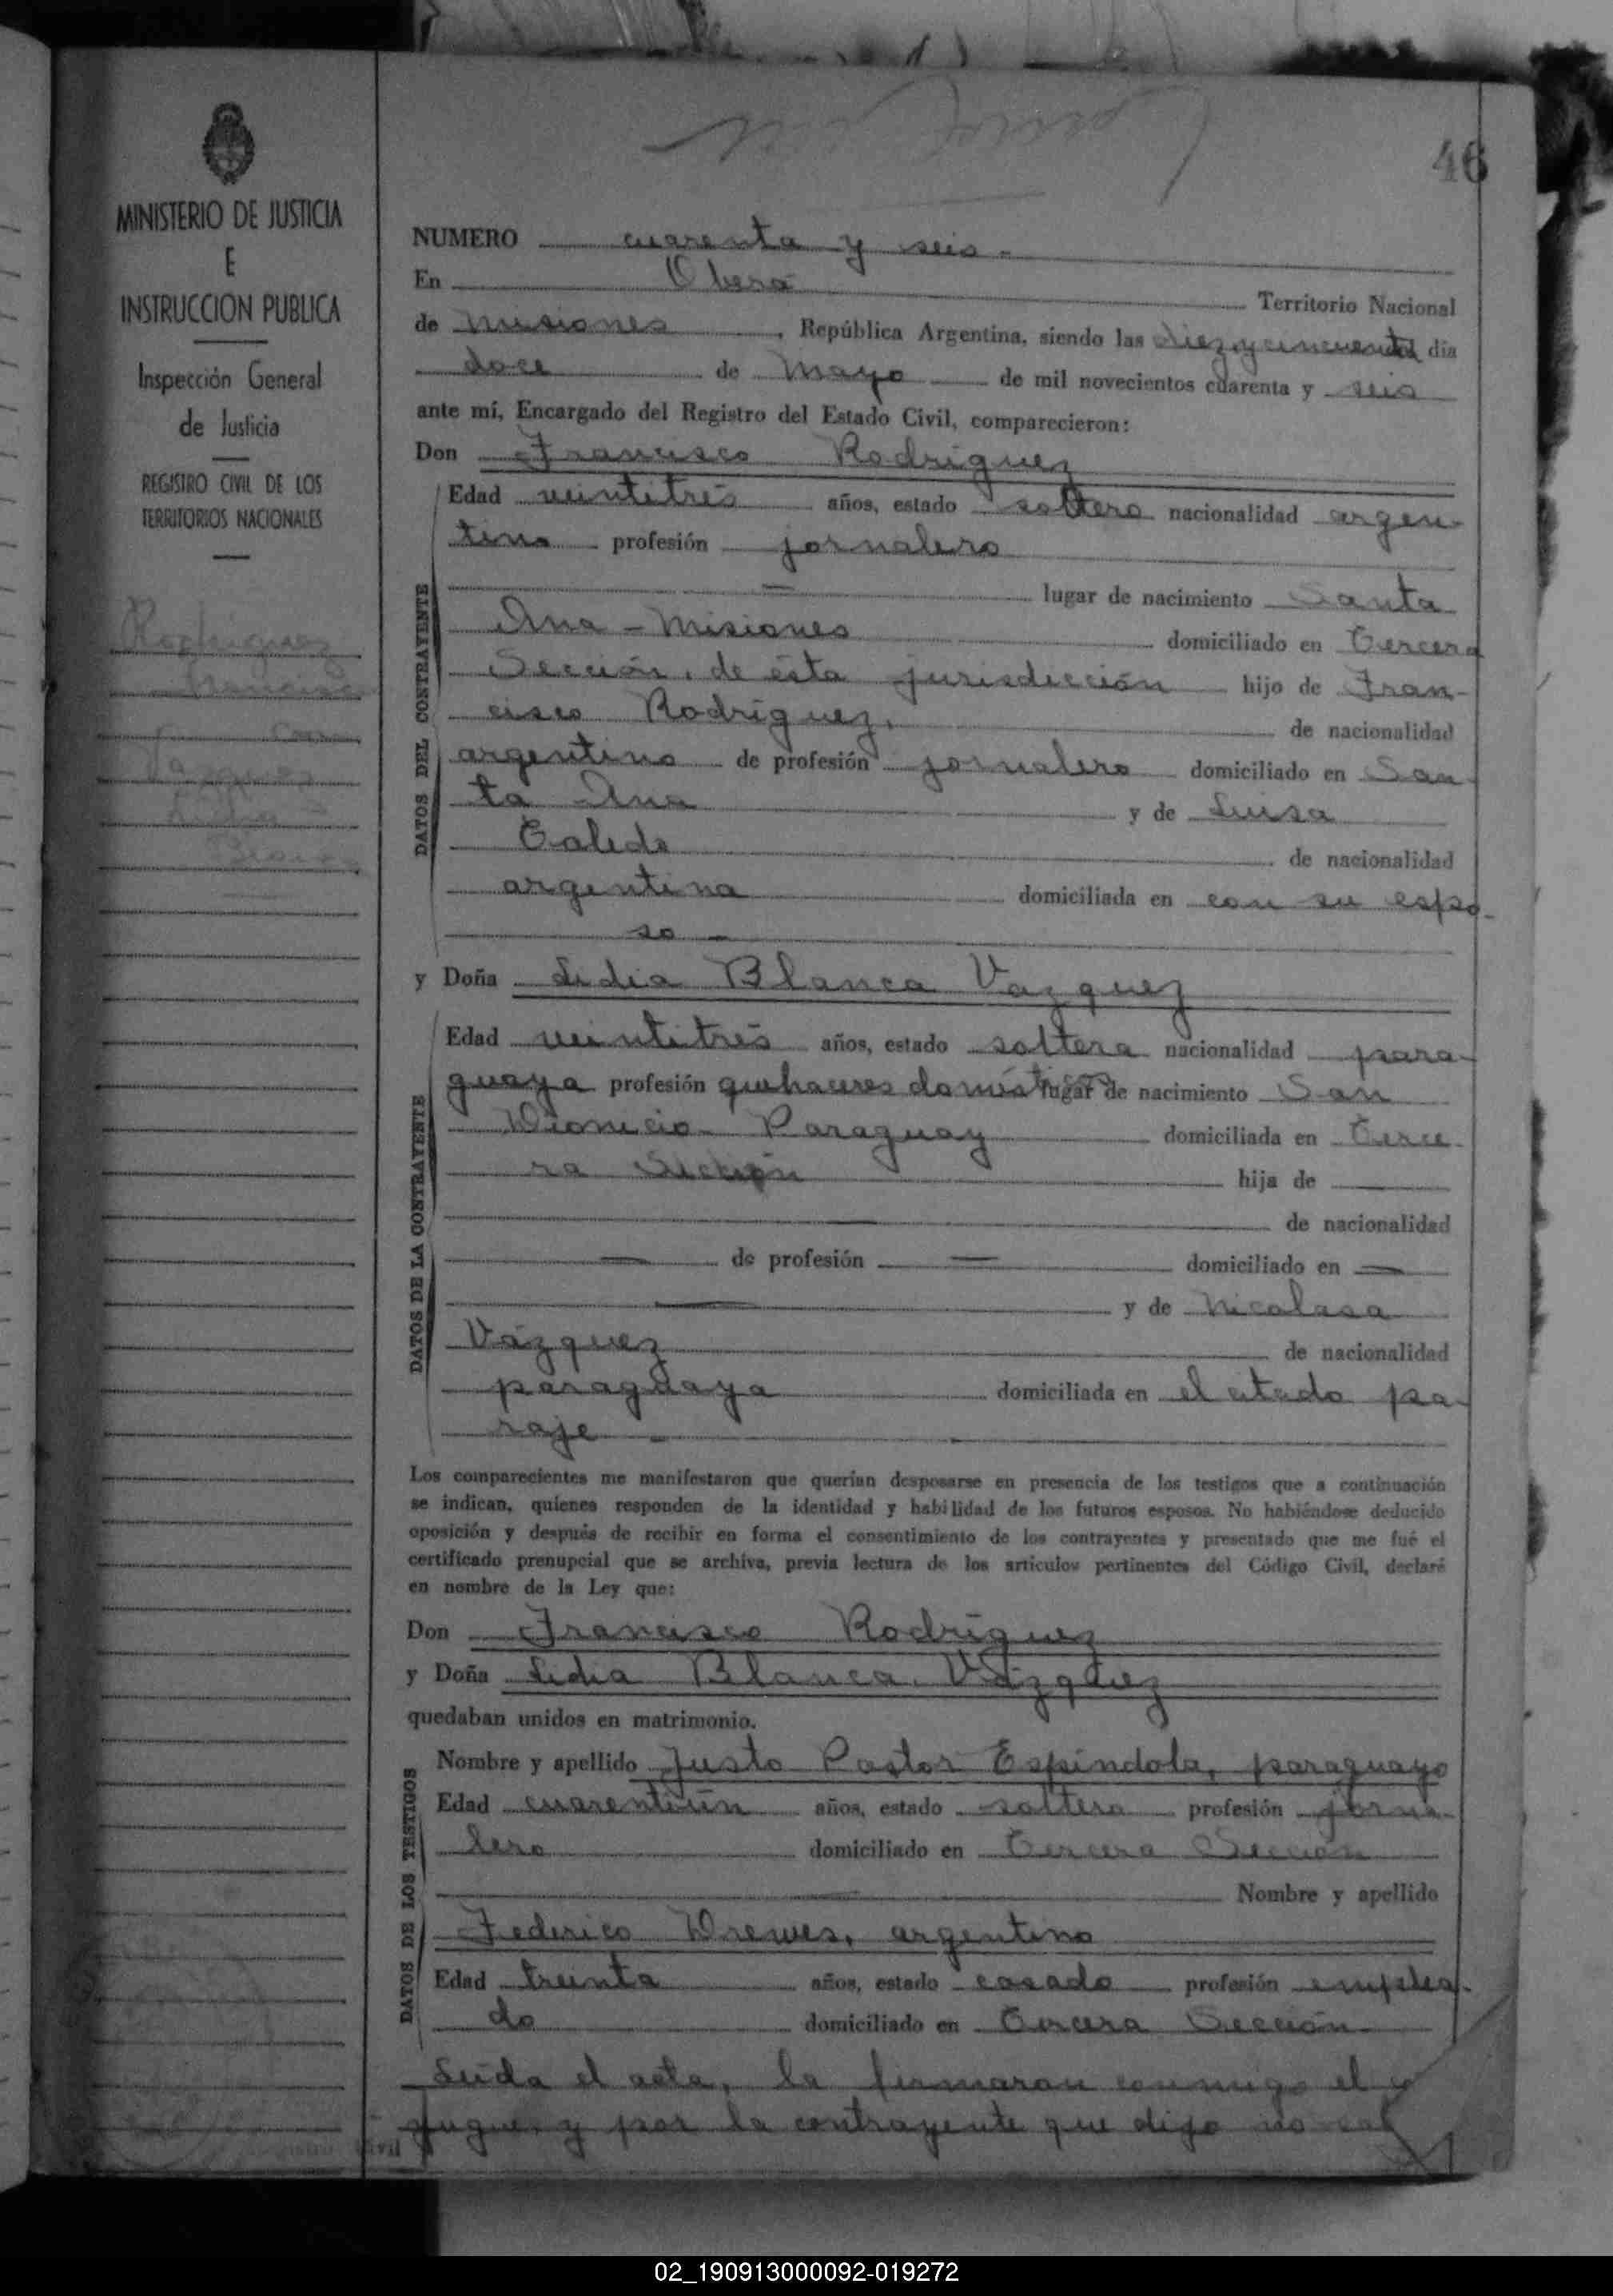 46
MINISTERIO DE JUSTICIA
E
INSTRUCCION PUBLICA
Inspección General
de Justicia
REGISTRO CIVIL DE LOS
TERRITORIOS NACIONALES
Rodriguez
Francisco
con
Vazquez
Lidia
Blanca
NUMERO cuarenta y seis -
En Oberá Territorio Nacional
de Misiones, República Argentina, siendo las diez y cincuenta día
doce de Mayo de mil novecientos cuarenta y seis
ante mí, Encargado del Registro del Estado Civil, comparecieron:
Don Francisco Rodriguez
DATOS DEL CONTRAYENTE
Edad veintitrés años, estado soltero nacionalidad argen-
tino profesión jornalero
— lugar de nacimiento Santa
Ana - Misiones domiciliado en Tercera
Sección, de ésta jurisdicción hijo de Fran-
cisco Rodriguez, de nacionalidad
argentino de profesión jornalero domiciliado en San-
ta Ana y de Luisa
de nacionalidad
argentina domiciliada en con su espo-
so -
y Doña Lidia Blanca Vazquez
DATOS DE LA CONTRAYENTE
Edad veintitrés años, estado soltera nacionalidad para-
guaya profesión quehaceres domésticos lugar de nacimiento San
Dionicio - Paraguay domiciliada en Terce-
ra Sección hija de —
— de nacionalidad
— de profesión — domiciliado en —
— y de Nicolasa
Vázquez de nacionalidad
paraguaya domiciliada en el citado pa-
raje -
Los comparecientes me manifestaron que querían desposarse en presencia de los testigos que a continuación
se indican, quienes responden de la identidad y habilidad de los futuros esposos. No habiéndose deducido
oposición y después de recibir en forma el consentimiento de los contrayentes y presentado que me fué el
certificado prenupcial que se archiva, previa lectura de los artículos pertinentes del Código Civil, declaré
en nombre de la Ley que:
Don Francisco Rodriguez
y Doña Lidia Blanca Vázquez
quedaban unidos en matrimonio.
DATOS DE LOS TESTIGOS
Nombre y apellido Justo Pastor Espíndola, paraguayo
Edad cuarentiún años, estado soltero profesión jorna-
lero domiciliado en Tercera Sección
— Nombre y apellido
Federico Drewes, argentino
Edad treinta años, estado casado profesión emplea-
do domiciliado en Tercera Sección
Leída el acta, la firmaron conmigo el
y por la contrayente que dijo no
02_190913000092-019272